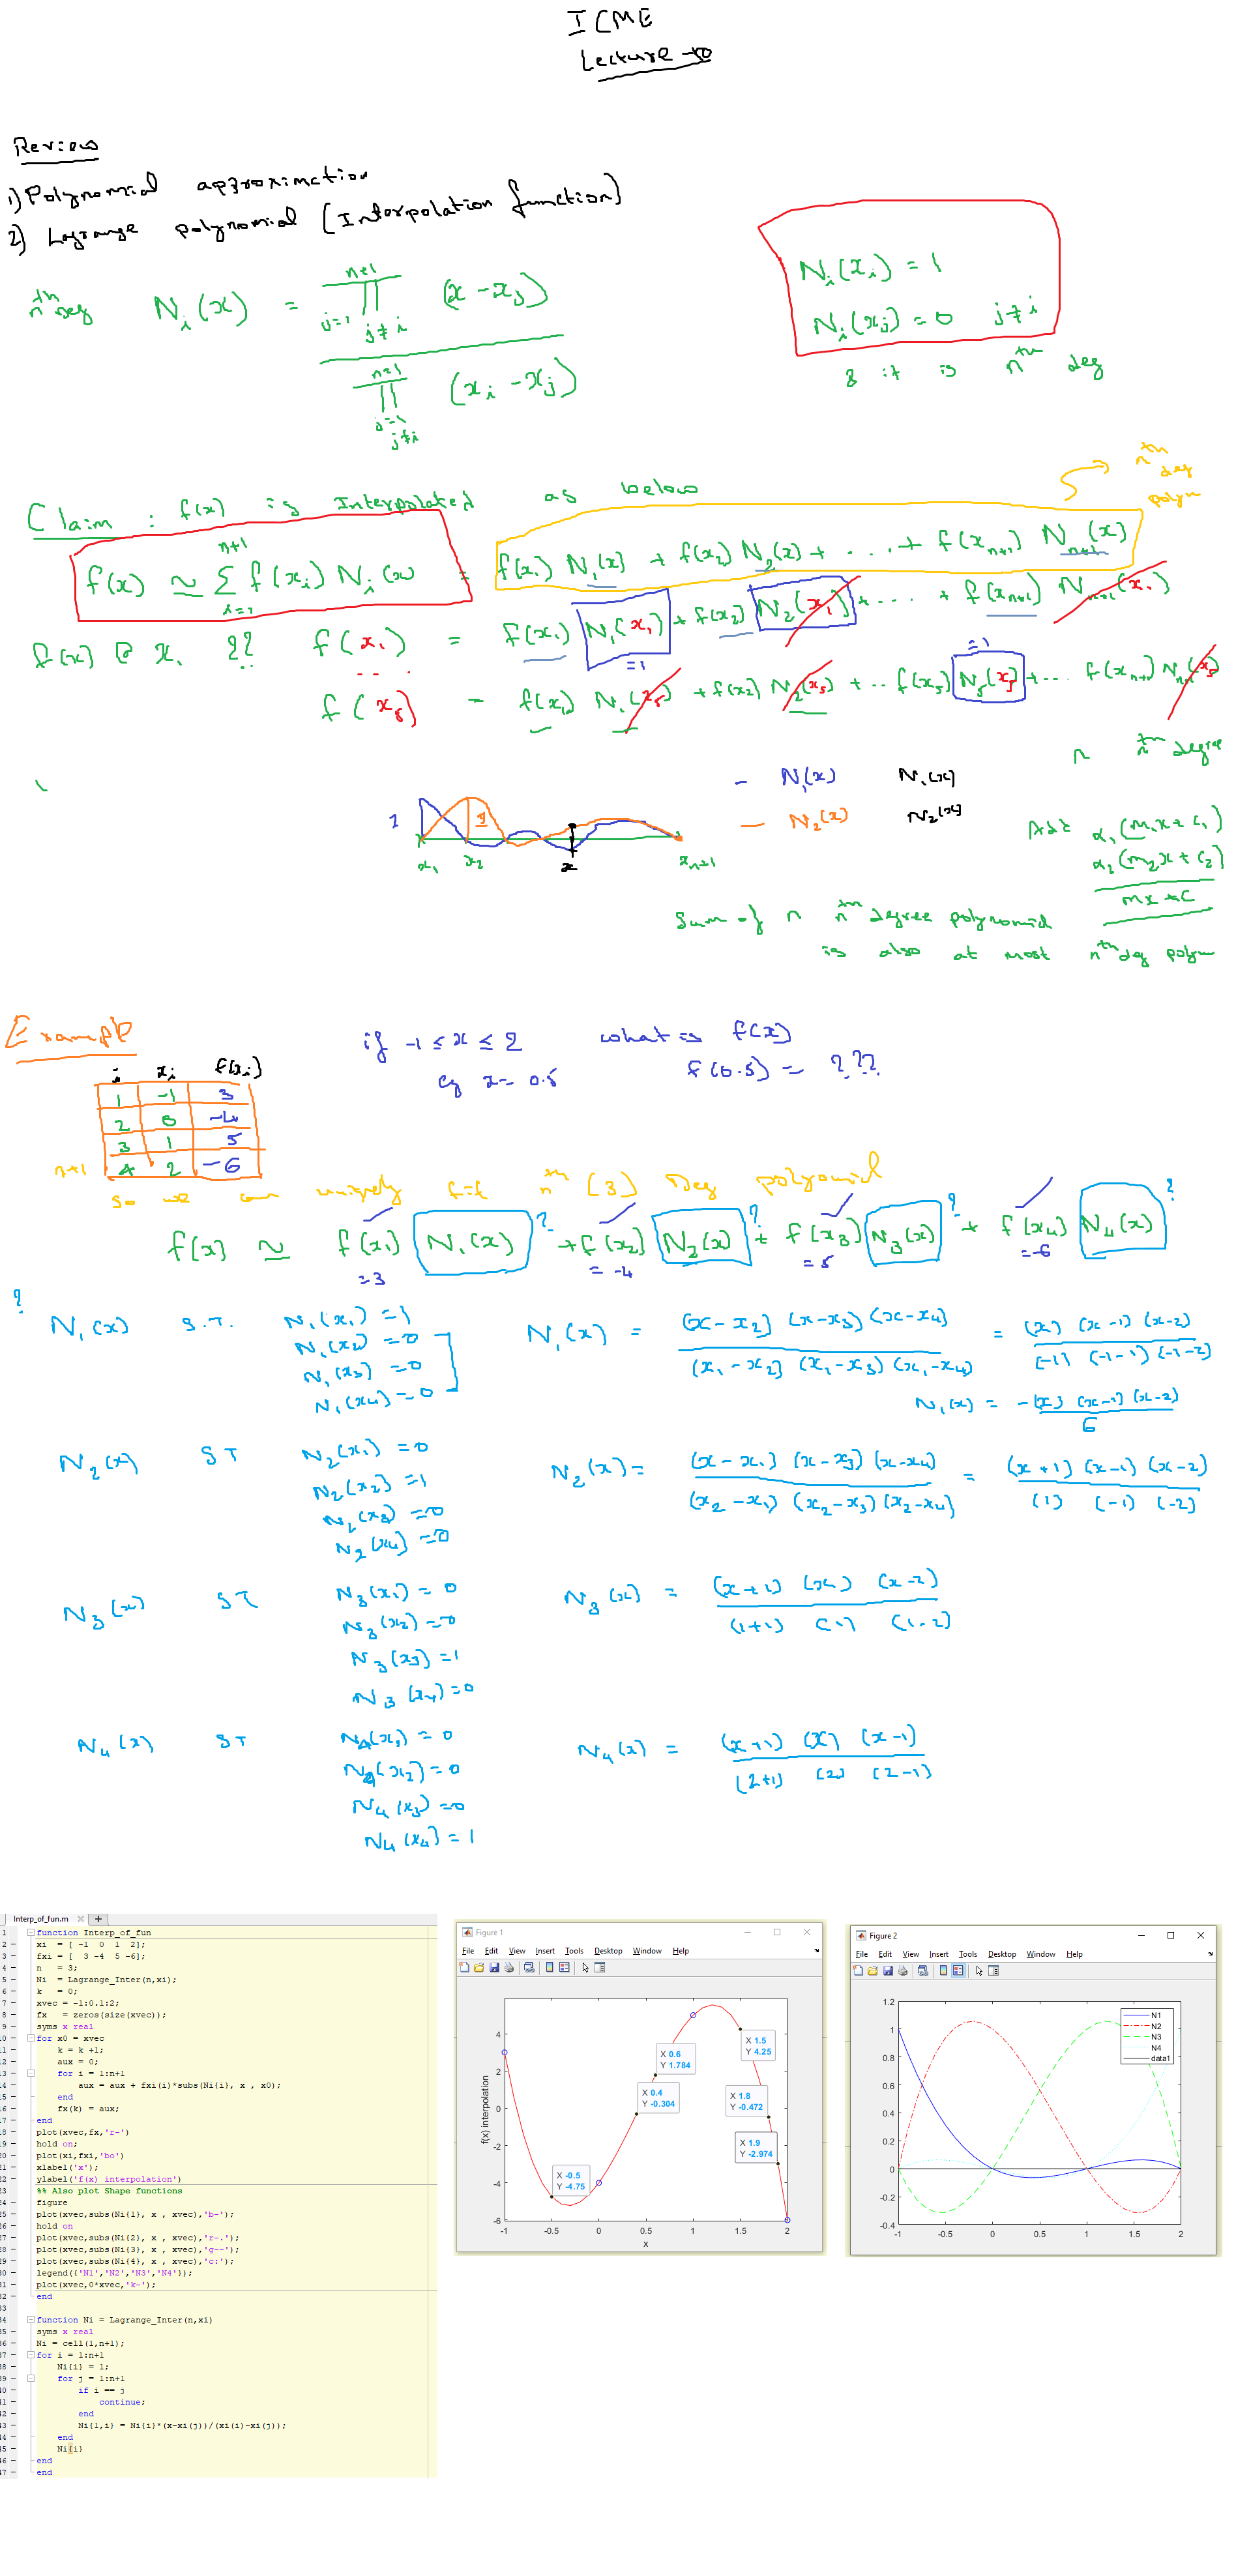 ICME
Lecture 10
Review
1) Polynomial approximation
2) Lagrange polynomial (Interpolation function)
nth deg N_i(x) = ∏_{j=1, j≠i}^{n+1} (x - x_j) / ∏_{j=1, j≠i}^{n+1} (x_i - x_j)
N_i(x_i) = 1
N_i(x_j) = 0 j≠i
& it is nth deg
Claim : f(x) is Interpolated as below
nth deg polyn
f(x) ≃ Σ_{i=1}^{n+1} f(x_i) N_i(x) = f(x_1) N_1(x) + f(x_2) N_2(x) + ... + f(x_{n+1}) N_{n+1}(x)
f(x) @ x_1 ?? f(x_1) = f(x_1) N_1(x_1) + f(x_2) N_2(x_1) + ... + f(x_{n+1}) N_{n+1}(x_1)
=1
=1
f(x_5) = f(x_1) N_1(x_5) + f(x_2) N_2(x_5) + .. f(x_5) N_5(x_5) + ... f(x_{n+1}) N_{n+1}(x_5)
n nth degree
- N_1(x) N_1(x)
- N_2(x) N_2(x)
1 1
x_1 x_2 x x_{n+1}
Add α_1(m_1x + c_1)
α_2(m_2x + c_2)
mx + c
Sum of n nth degree polynomial
is also at most nth deg polyn
Example
if -1 ≤ x ≤ 2 what is f(x)
eg x = 0.5 f(0.5) = ???
i x_i f(x_i)
1 -1 3
2 0 -4
3 1 5
n+1 4 2 -6
so we can uniquely fit nth (3) Deg polyomial
f(x) ≃ f(x_1) N_1(x) ? + f(x_2) N_2(x) ? + f(x_3) N_3(x) ? + f(x_4) N_4(x) ?
=3 = -4 = 5 = -6
?
N_1(x) S.T. N_1(x_1) = 1
N_1(x_2) = 0
N_1(x_3) = 0
N_1(x_4) = 0
N_1(x) = (x - x_2) (x - x_3) (x - x_4) / (x_1 - x_2) (x_1 - x_3) (x_1 - x_4) = (x) (x-1) (x-2) / (-1) (-1-1) (-1-2)
N_1(x) = -(x) (x-1) (x-2) / 6
N_2(x) ST N_2(x_1) = 0
N_2(x_2) = 1
N_2(x_3) = 0
N_2(x_4) = 0
N_2(x) = (x - x_1) (x - x_3) (x - x_4) / (x_2 - x_1) (x_2 - x_3) (x_2 - x_4) = (x+1) (x-1) (x-2) / (1) (-1) (-2)
N_3(x) ST N_3(x_1) = 0
N_3(x_2) = 0
N_3(x_3) = 1
N_3(x_4) = 0
N_3(x) = (x+1) (x) (x-2) / (1+1) (1) (1-2)
N_4(x) ST N_4(x_1) = 0
N_4(x_2) = 0
N_4(x_3) = 0
N_4(x_4) = 1
N_4(x) = (x+1) (x) (x-1) / (2+1) (2) (2-1)
Interp_of_fun.m
function Interp_of_fun
xi = [ -1 0 1 2];
fxi = [ 3 -4 5 -6];
n = 3;
Ni = Lagrange_Inter(n,xi);
k = 0;
xvec = -1:0.1:2;
fx = zeros(size(xvec));
syms x real
for x0 = xvec
k = k +1;
aux = 0;
for i = 1:n+1
aux = aux + fxi(i)*subs(Ni{i}, x , x0);
end
fx(k) = aux;
end
plot(xvec,fx,'r-')
hold on;
plot(xi,fxi,'bo')
xlabel('x');
ylabel('f(x) interpolation')
%% Also plot Shape functions
figure
plot(xvec,subs(Ni{1}, x , xvec),'b-');
hold on
plot(xvec,subs(Ni{2}, x , xvec),'r-.');
plot(xvec,subs(Ni{3}, x , xvec),'g--');
plot(xvec,subs(Ni{4}, x , xvec),'c:');
legend({'N1','N2','N3','N4'});
plot(xvec,0*xvec,'k-');
end
function Ni = Lagrange_Inter(n,xi)
syms x real
Ni = cell(1,n+1);
for i = 1:n+1
Ni{i} = 1;
for j = 1:n+1
if i == j
continue;
end
Ni{1,i} = Ni{i}*(x-xi(j))/(xi(i)-xi(j));
end
Ni{i}
end
end
Figure 1
File Edit View Insert Tools Desktop Window Help
f(x) interpolation
4
2
0
-2
-4
-6
X 0.6
Y 1.784
X 1.5
Y 4.25
X 0.4
Y -0.304
X 1.8
Y -0.472
X 1.9
Y -2.974
X -0.5
Y -4.75
-1 -0.5 0 0.5 1 1.5 2
x
Figure 2
File Edit View Insert Tools Desktop Window Help
1.2
1
0.8
0.6
0.4
0.2
0
-0.2
-0.4
N1
N2
N3
N4
data1
-1 -0.5 0 0.5 1 1.5 2